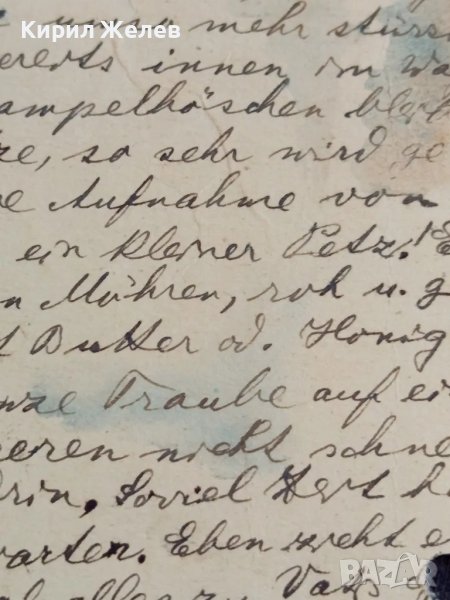 Кирил Желев
mehr stürm
bereits innen im wa
ampelhöschen bleib
ze, so sehr wird ge
e Aufnahme von
ein kleiner Petz! E
n Möhren, roh u. g
t Butter od. Honig
nze Traube auf ei
eren nicht schne
drin. Soviel Zeit h
warten. Eben zieht e
alles zu
bazar